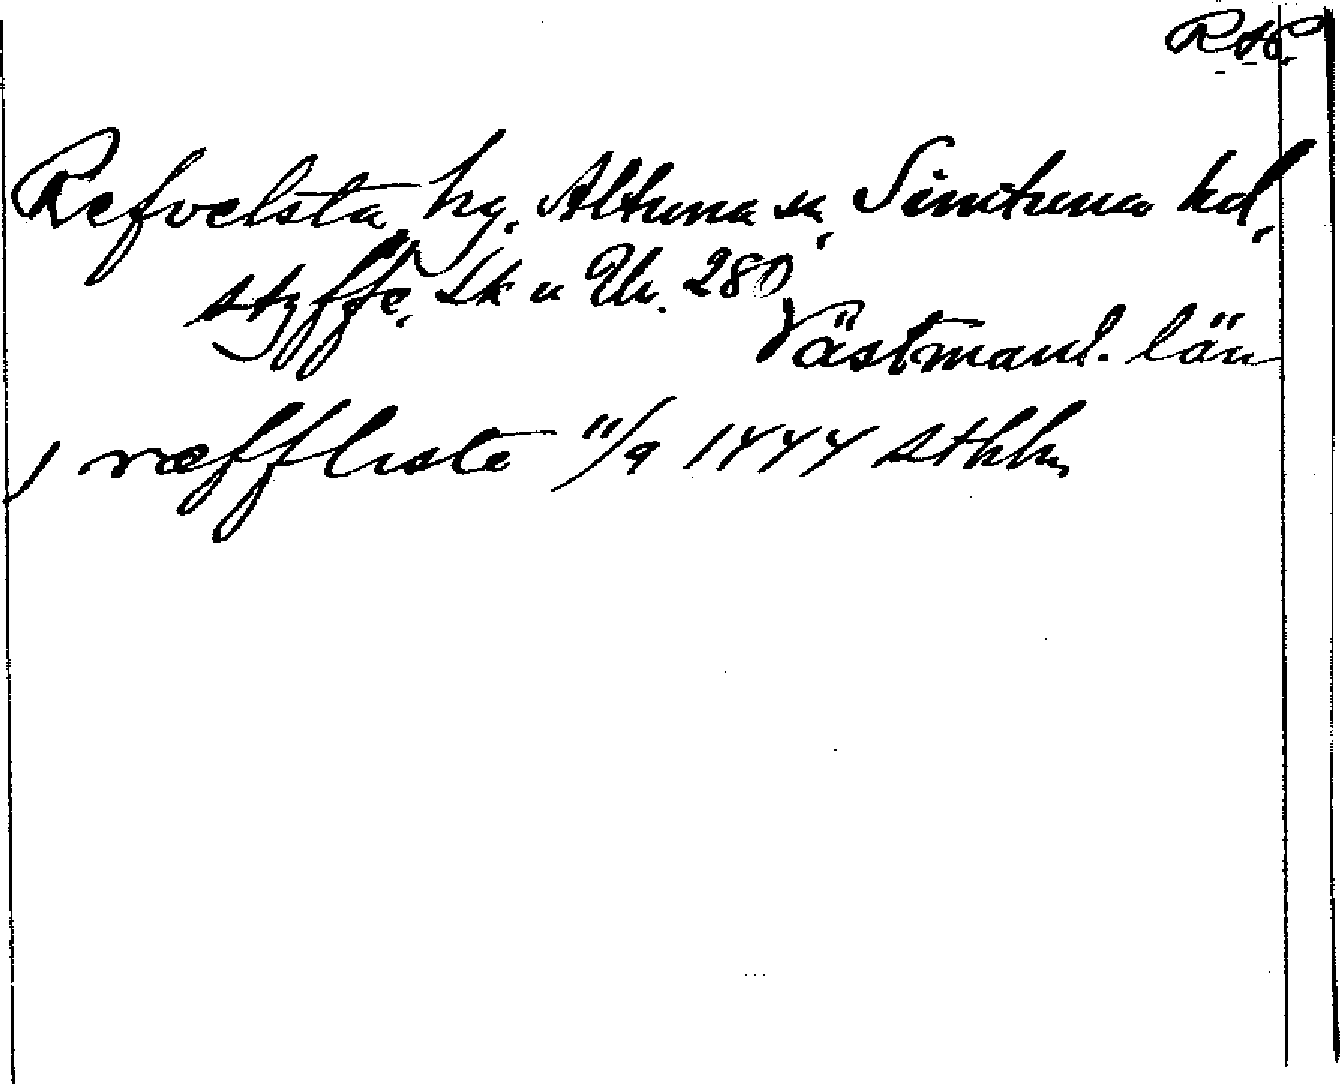 RAP.
Refvelsta hg. Altuna sn, Simtuna hd.
Styffe. Sk u Un. 280
Västmanl. län
, ræfflesta 11/9 1444 Sthlm